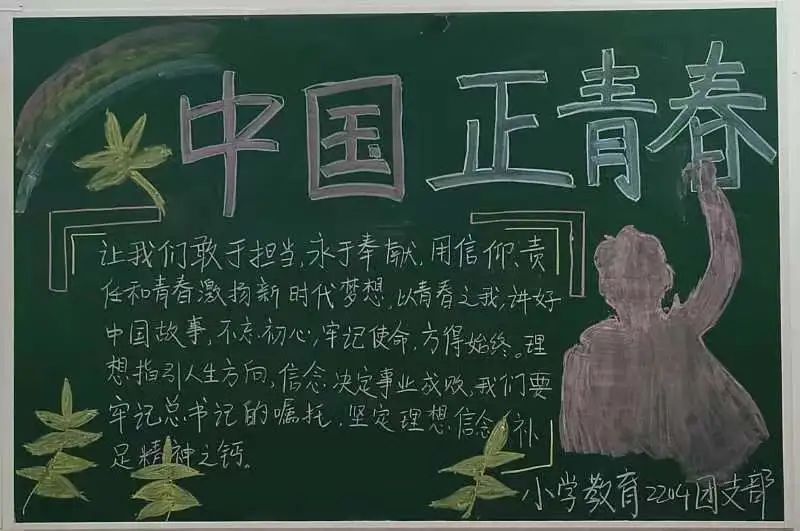 中国 正青春
让我们敢于担当,永于奉献,用信仰、责
任和青春激扬新时代梦想,以青春之我,讲好
中国故事,不忘初心,牢记使命,方得始终。理
想指引人生方向,信念决定事业成败,我们要
牢记总书记的嘱托,坚定理想信念,补
足精神之钙。
小学教育2204团支部